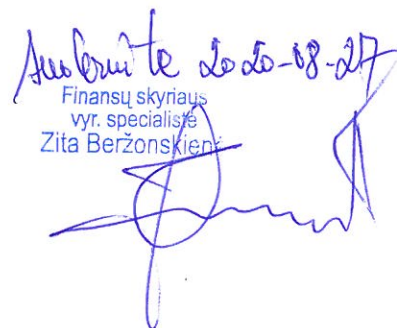 2020-08-27
Finansų skyriaus
vyr. specialistė
Zita Beržonskienė